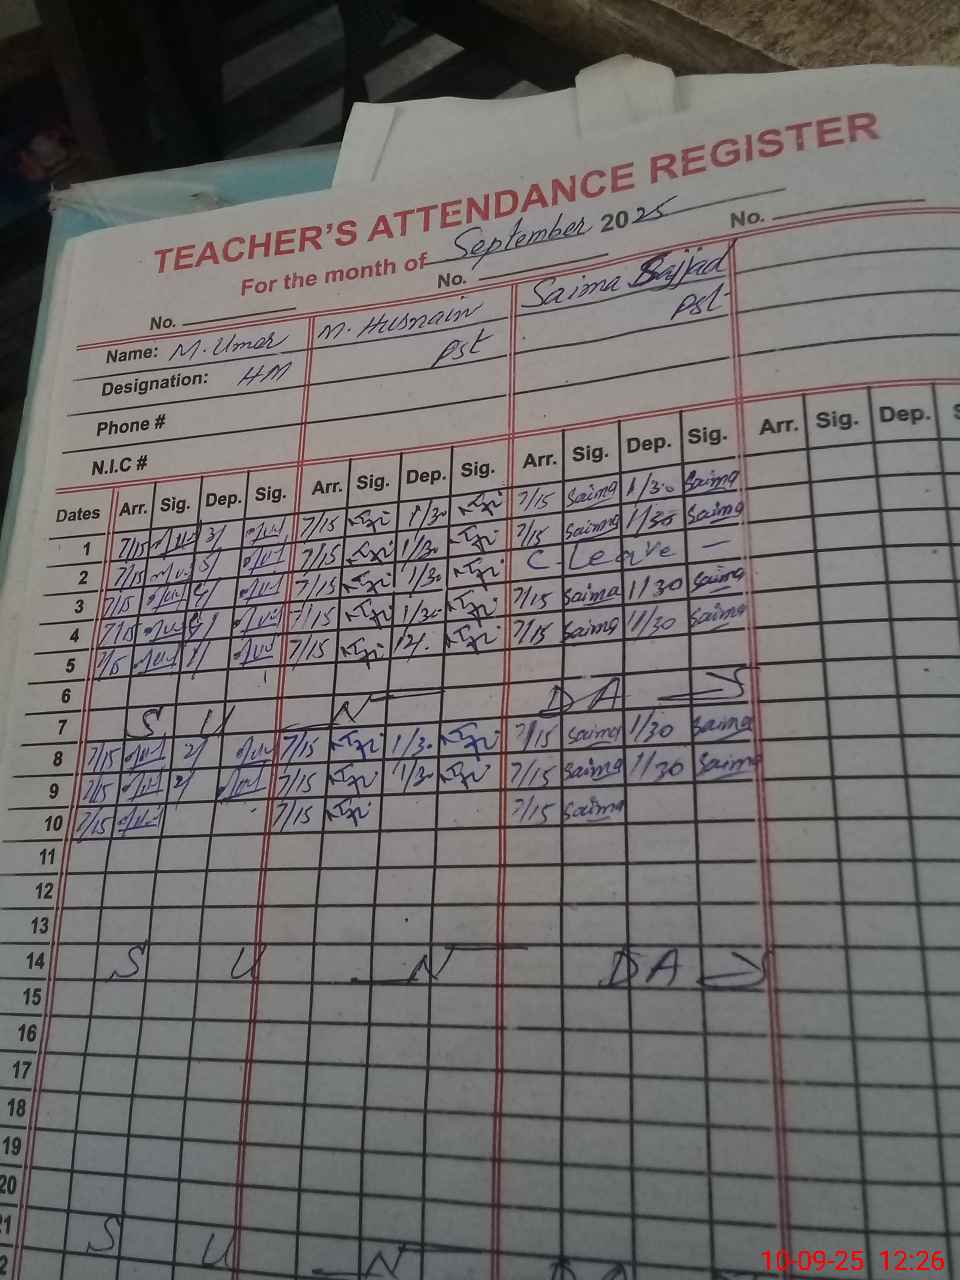 TEACHER'S ATTENDANCE REGISTER
For the month of September 2025
No. No. No.
Name: M. Umar M. Husnain Saima Sajjad
Designation: HM Pst Pst
Phone #
N.I.C #
Dates Arr. Sig. Dep. Sig. Arr. Sig. Dep. Sig. Arr. Sig. Dep. Sig. Arr. Sig. Dep. S
1 7/15 7/15 1/30 7/15 Saima 1/30 Saima
2 7/15 7/15 1/30 7/15 Saima 1/30 Saima
3 7/15 7/15 1/30 C. Leave —
4 7/15 7/15 1/30 7/15 Saima 1/30 Saima
5 7/15 7/15 12/. 7/15 Saima 1/30 Saima
6
7 S U N DA Y
8 7/15 2/ 7/15 1/30 7/15 Saima 1/30 Saima
9 7/15 2/ 7/15 1/30 7/15 Saima 1/30 Saima
10 7/15 7/15 7/15 Saima
11
12
13
14 S U N DA Y
15
16
17
18
19
20
21 S U N
2
10-09-25 12:26